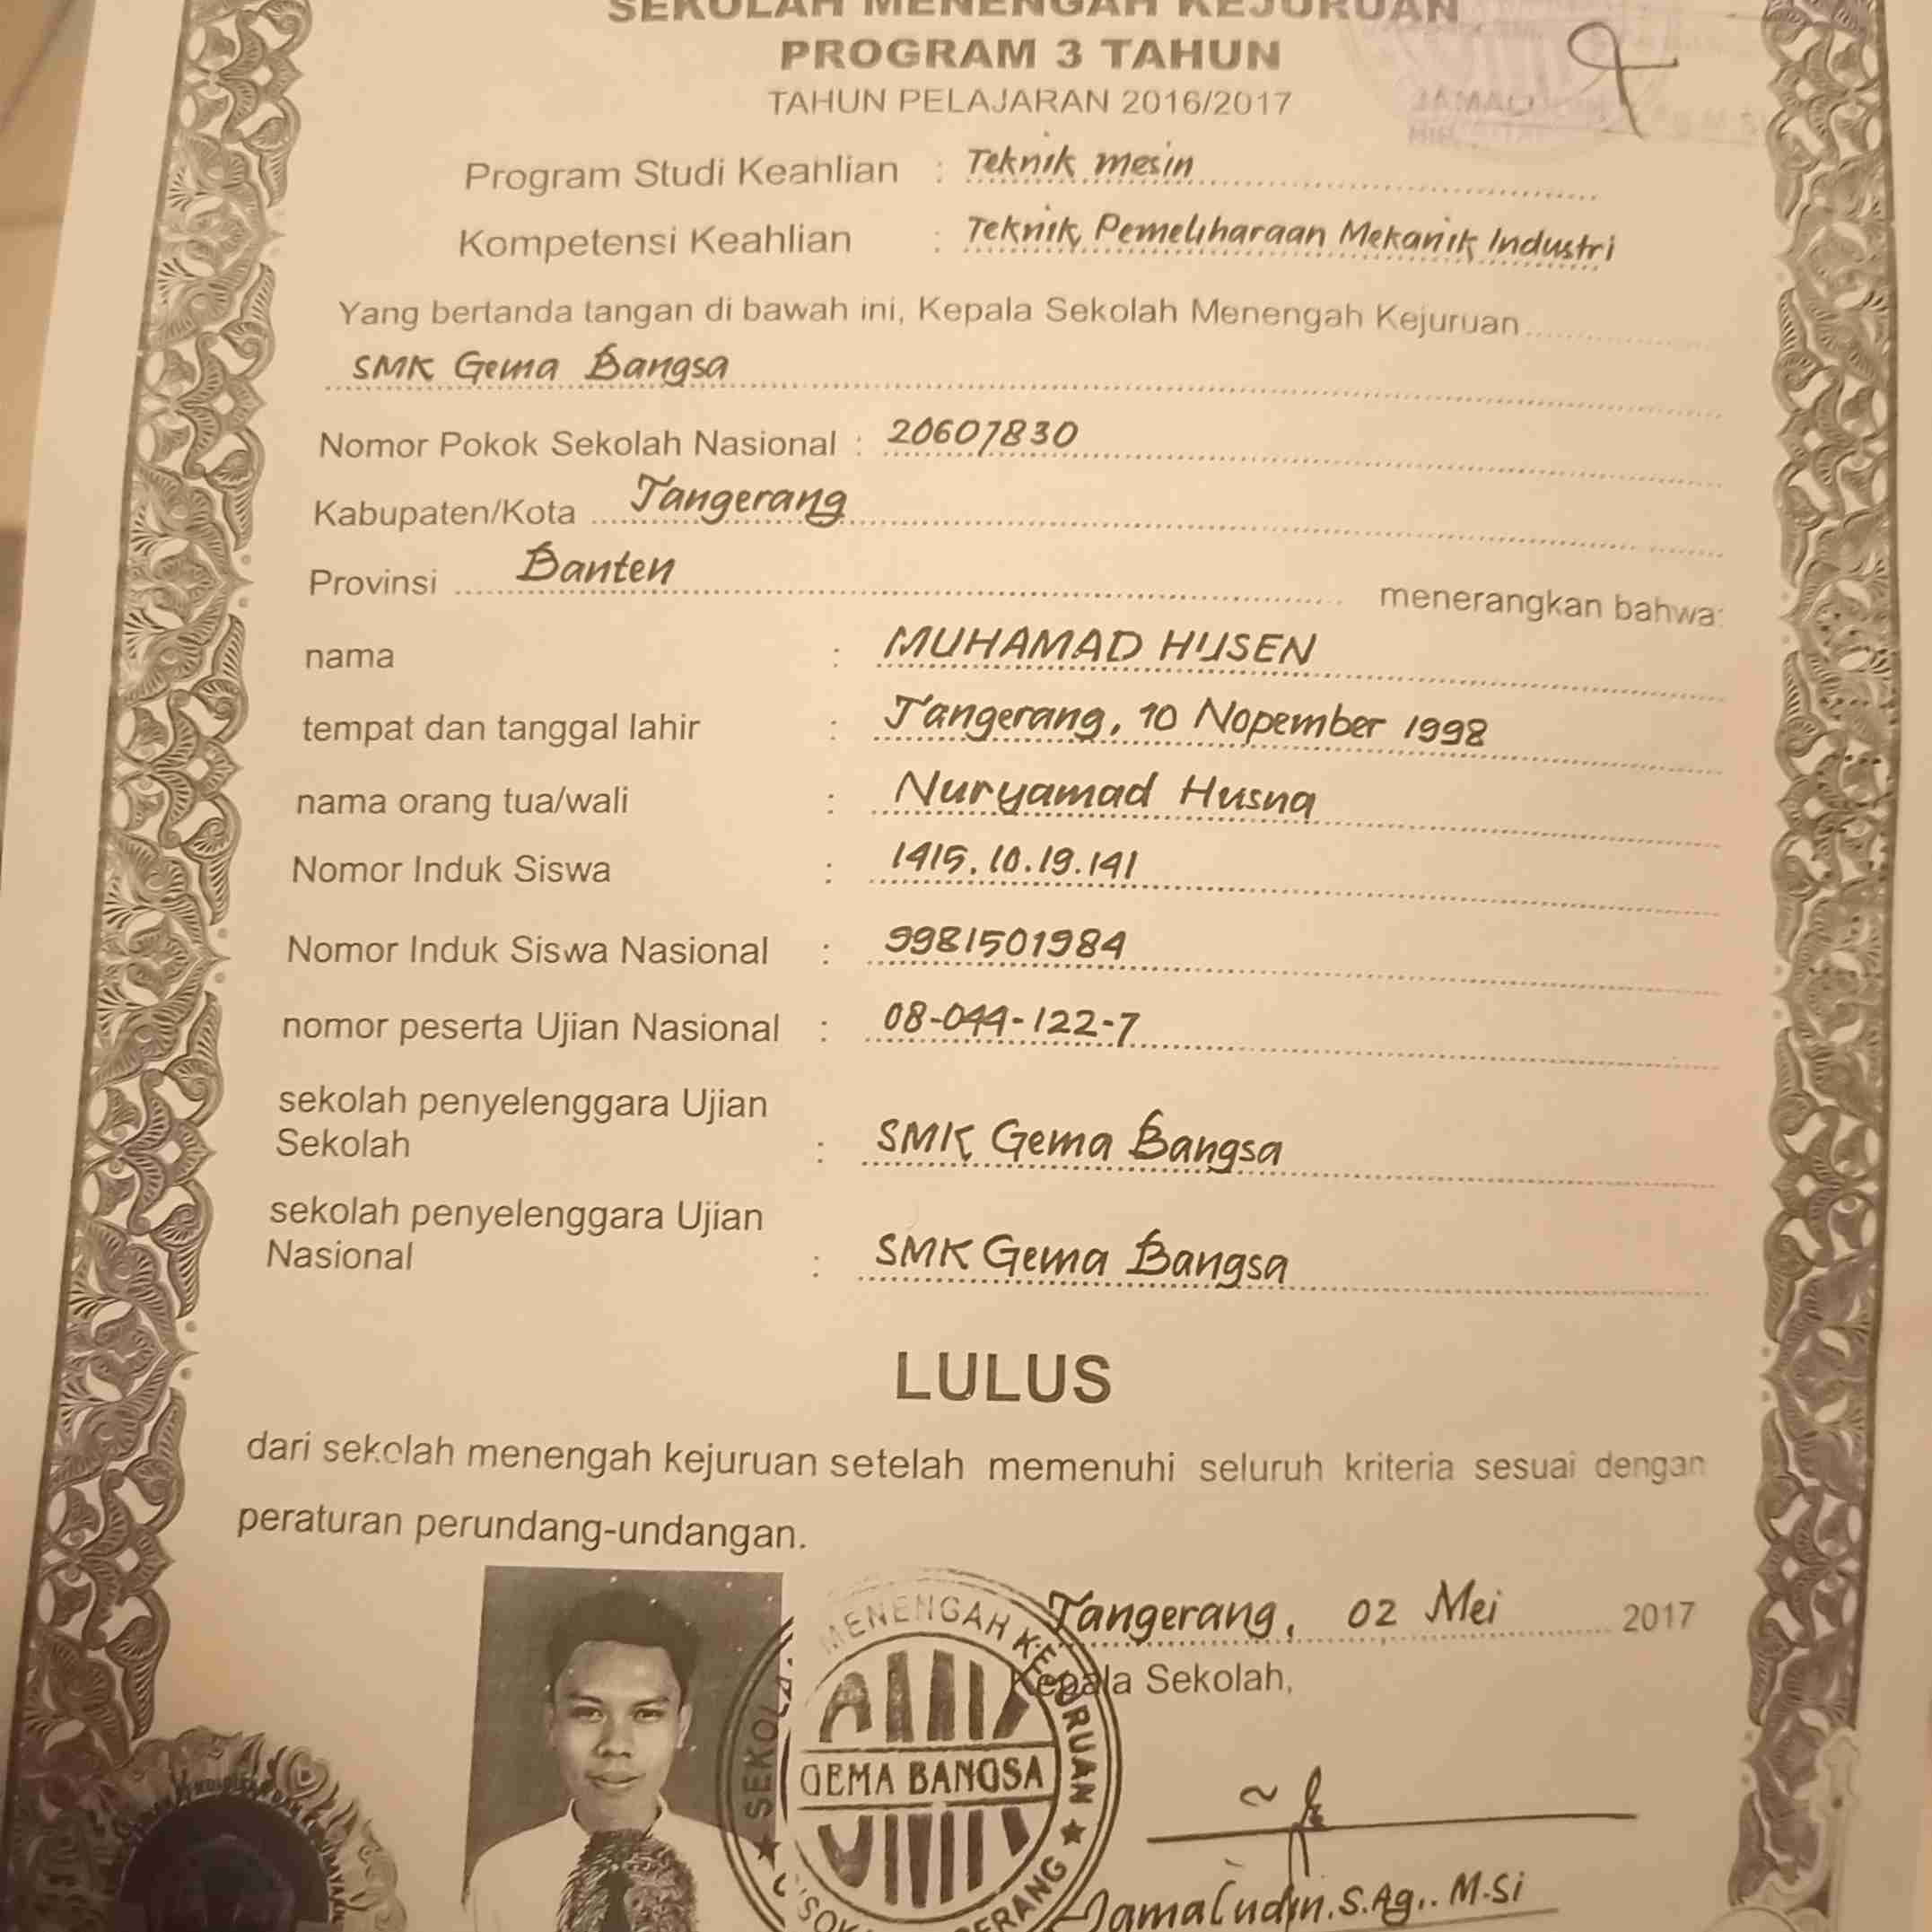 SEKOLAH MENENGAH KEJURUAN
PROGRAM 3 TAHUN
TAHUN PELAJARAN 2016/2017
Program Studi Keahlian : Teknik mesin
Kompetensi Keahlian : Teknik Pemeliharaan Mekanik Industri
Yang bertanda tangan di bawah ini, Kepala Sekolah Menengah Kejuruan
SMK Gema Bangsa
Nomor Pokok Sekolah Nasional : 20607830
Kabupaten/Kota Tangerang
Provinsi Banten menerangkan bahwa:
nama : MUHAMAD HUSEN
tempat dan tanggal lahir : Tangerang, 10 Nopember 1998
nama orang tua/wali : Nuryamad Husna
Nomor Induk Siswa : 1415.10.19.141
Nomor Induk Siswa Nasional : 9981501984
nomor peserta Ujian Nasional : 08-044-122-7
sekolah penyelenggara Ujian
Sekolah : SMK Gema Bangsa
sekolah penyelenggara Ujian
Nasional : SMK Gema Bangsa
LULUS
dari sekolah menengah kejuruan setelah memenuhi seluruh kriteria sesuai dengan
peraturan perundang-undangan.
Tangerang, 02 Mei 2017
Kepala Sekolah,
SEKOLAH MENENGAH KEJURUAN
GEMA BANGSA
Jamaludin.S.Ag., M.Si